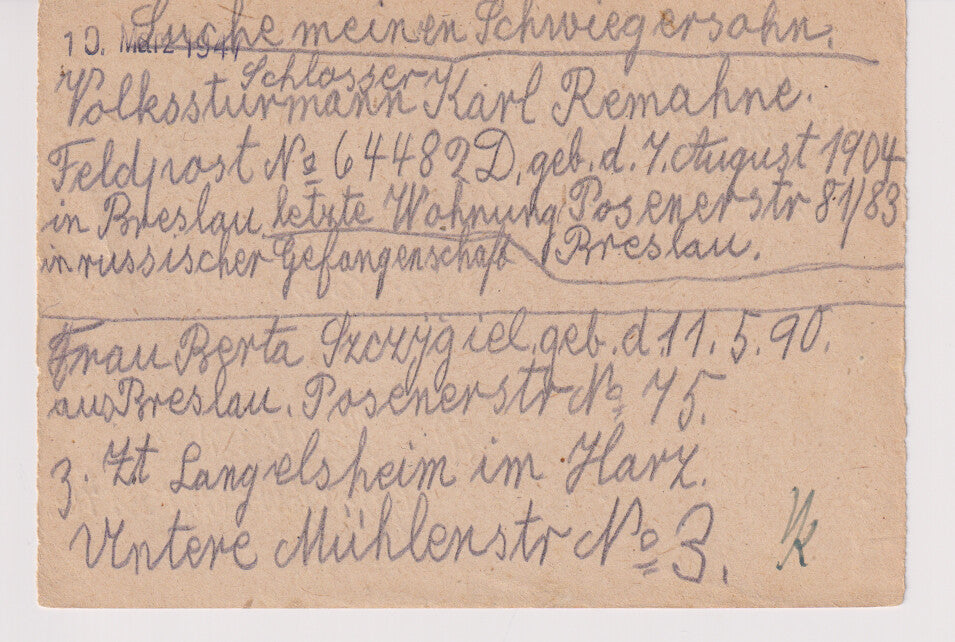 10. März 1947
Suche meinen Schwiegersohn.
Schlosser
Volkssturmann Karl Remahne.
Feldpost No 64482D, geb. d. 7. August 1904
in Breslau, letzte Wohnung Posenerstr 81/83
in russischer Gefangenschaft Breslau.
Frau Berta Szczÿgiel, geb. d. 11. 5. 90.
aus Breslau. Posenerstr No 75.
z. Zt Langelsheim im Harz.
Untere Mühlenstr No 3.